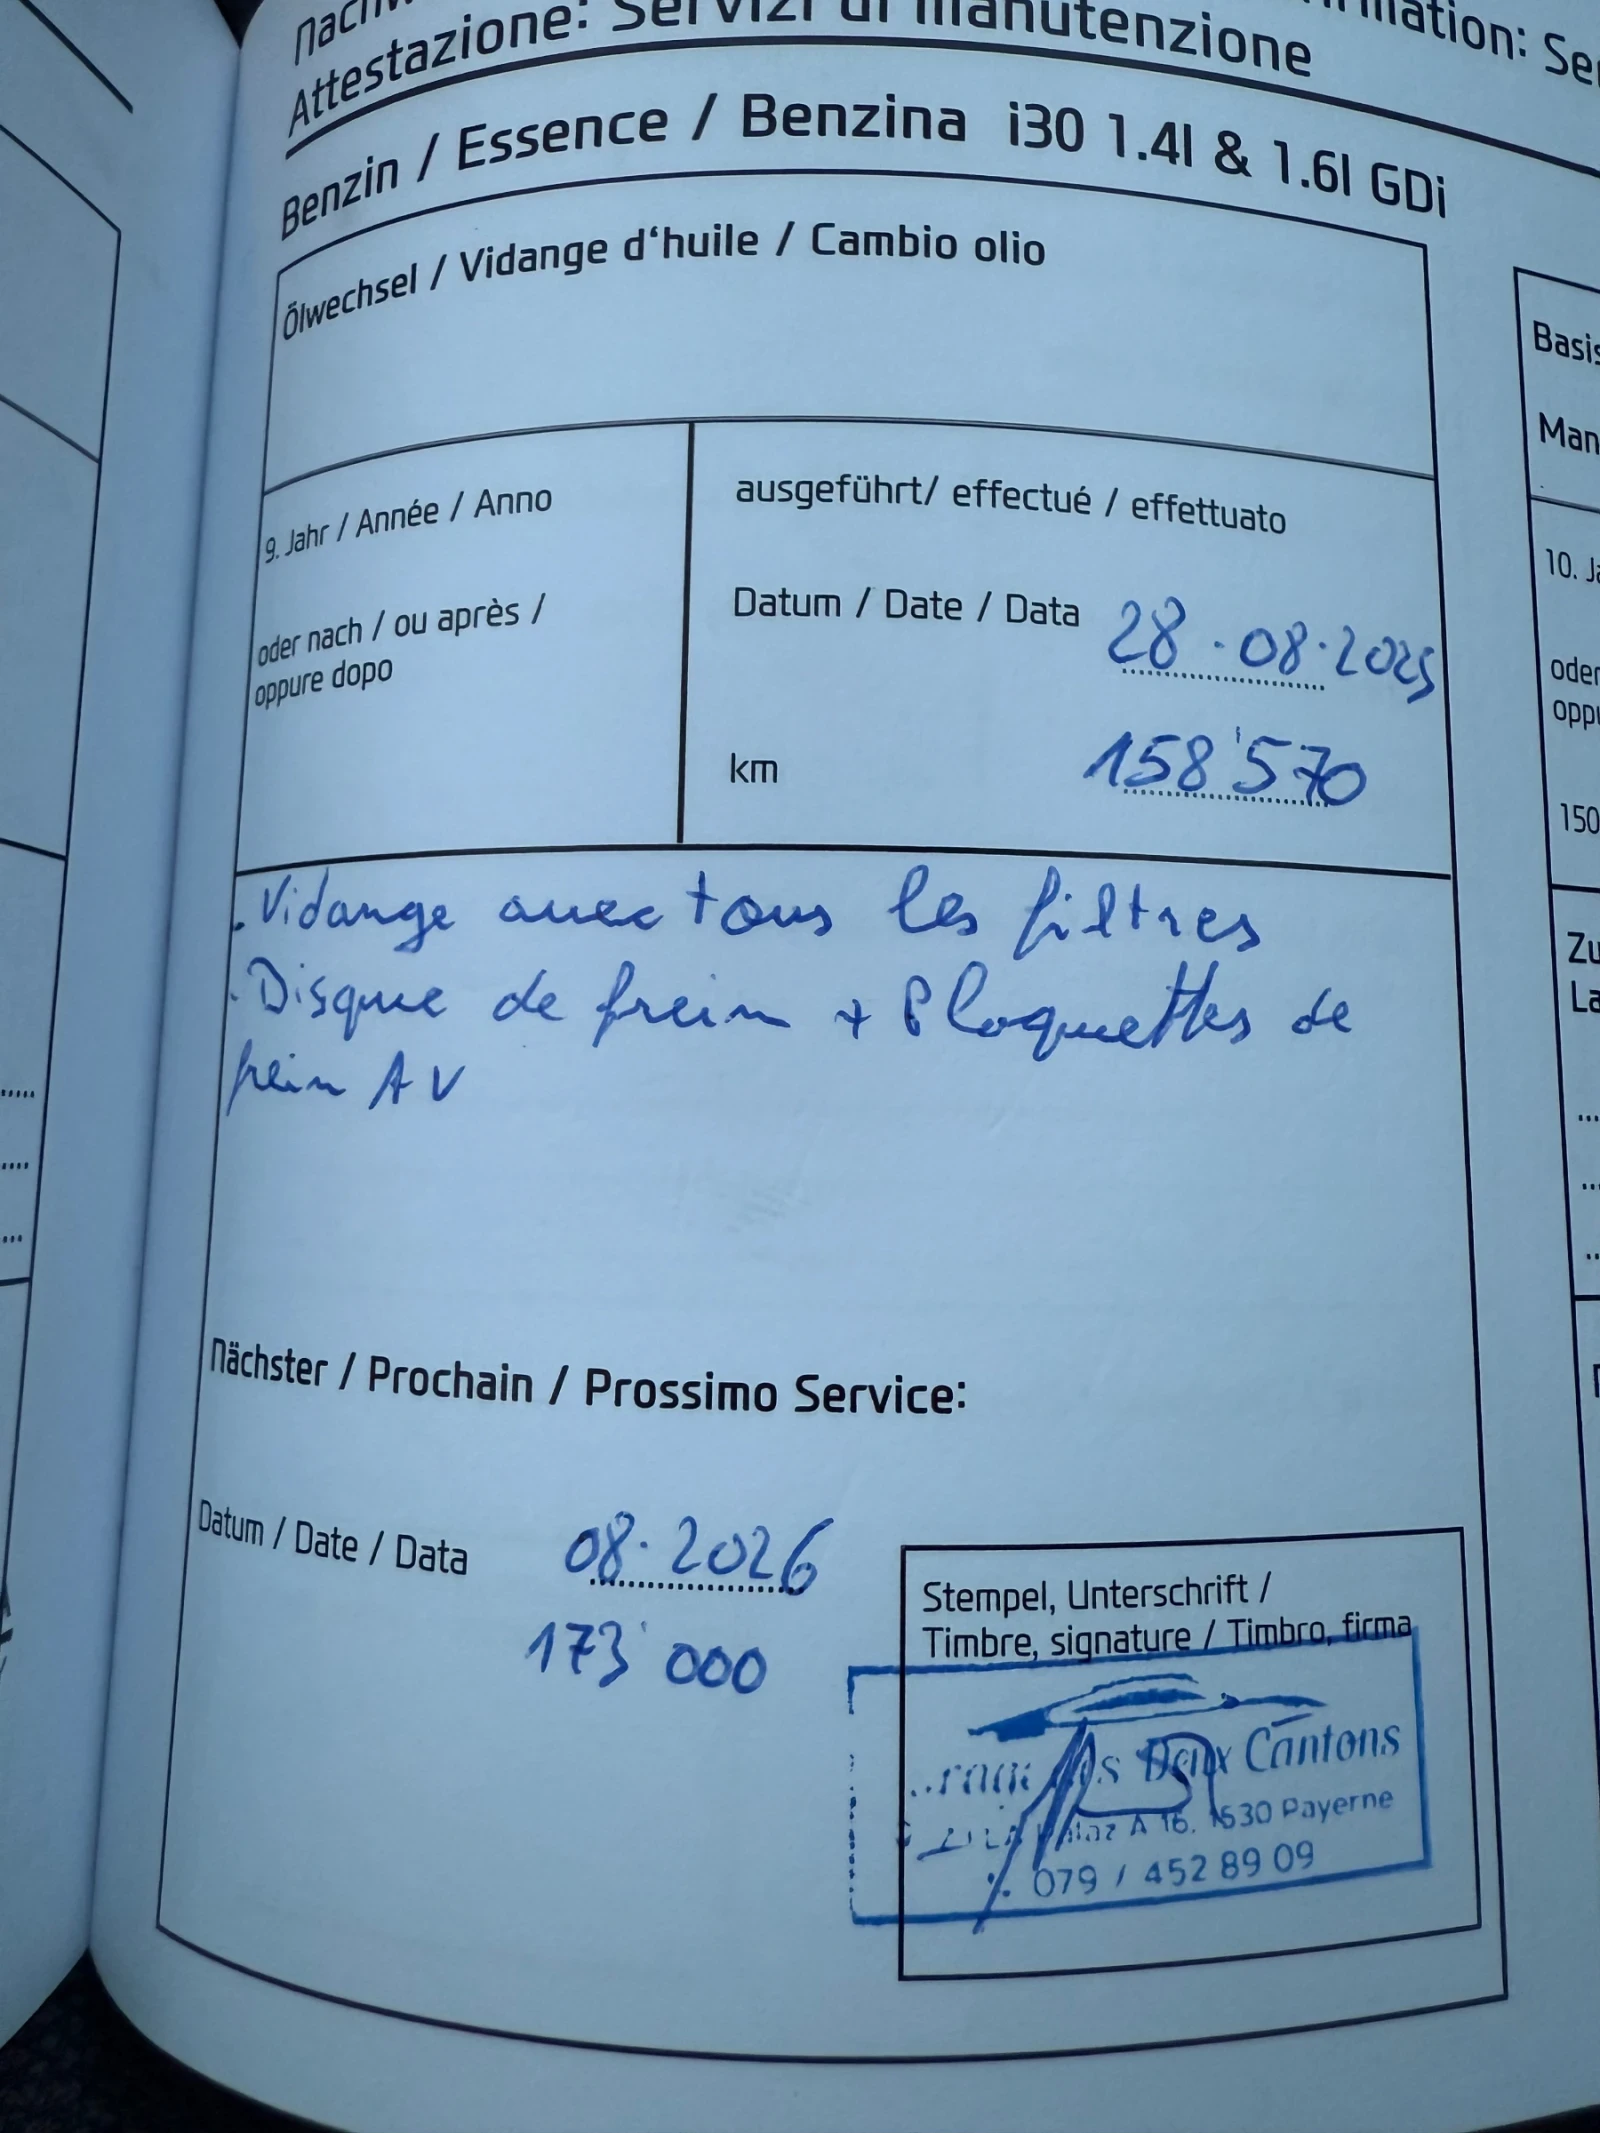 Attestazione: Servizi di manutenzione
Benzin / Essence / Benzina i30 1.4l & 1.6l GDi
Ölwechsel / Vidange d‘huile / Cambio olio
9. Jahr / Année / Anno
oder nach / ou après /
oppure dopo
ausgeführt/ effectué / effettuato
Datum / Date / Data 28.08.2025
km 158'570
. Vidange avec tous les filtres
. Disque de frein + Plaquettes de
frein AV
Nächster / Prochain / Prossimo Service:
Datum / Date / Data 08.2026
173'000
Stempel, Unterschrift /
Timbre, signature / Timbro, firma
Deux Cantons
A 16. 1530 Payerne
079 / 452 89 09
Basis
10.
150